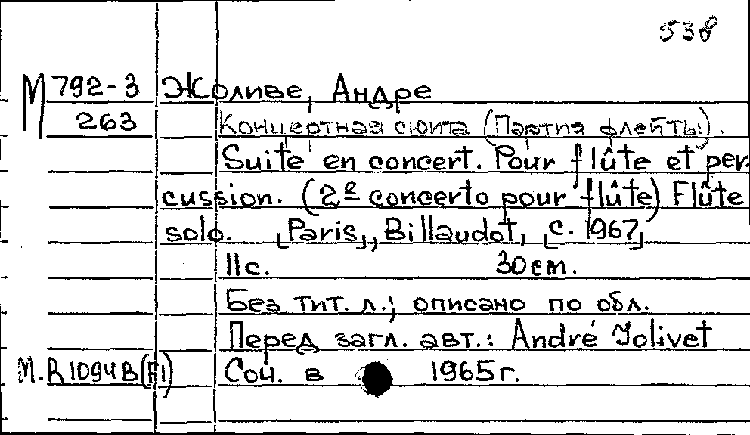 538
М 792-3 Жоливе, Андре
263 Концертная сюита (Партия флейты).
Suite en concert. Pour flûte et per-
cussion. (2e concerto pour flûte) Flûte
solo. [Paris], Billaudot, [c. 1967]
11с. 30cm.
Без тит. л.; описано по обл.
Перед загл. авт.: André Jolivet
M.R1094B(F1) Соч. в 1965г.